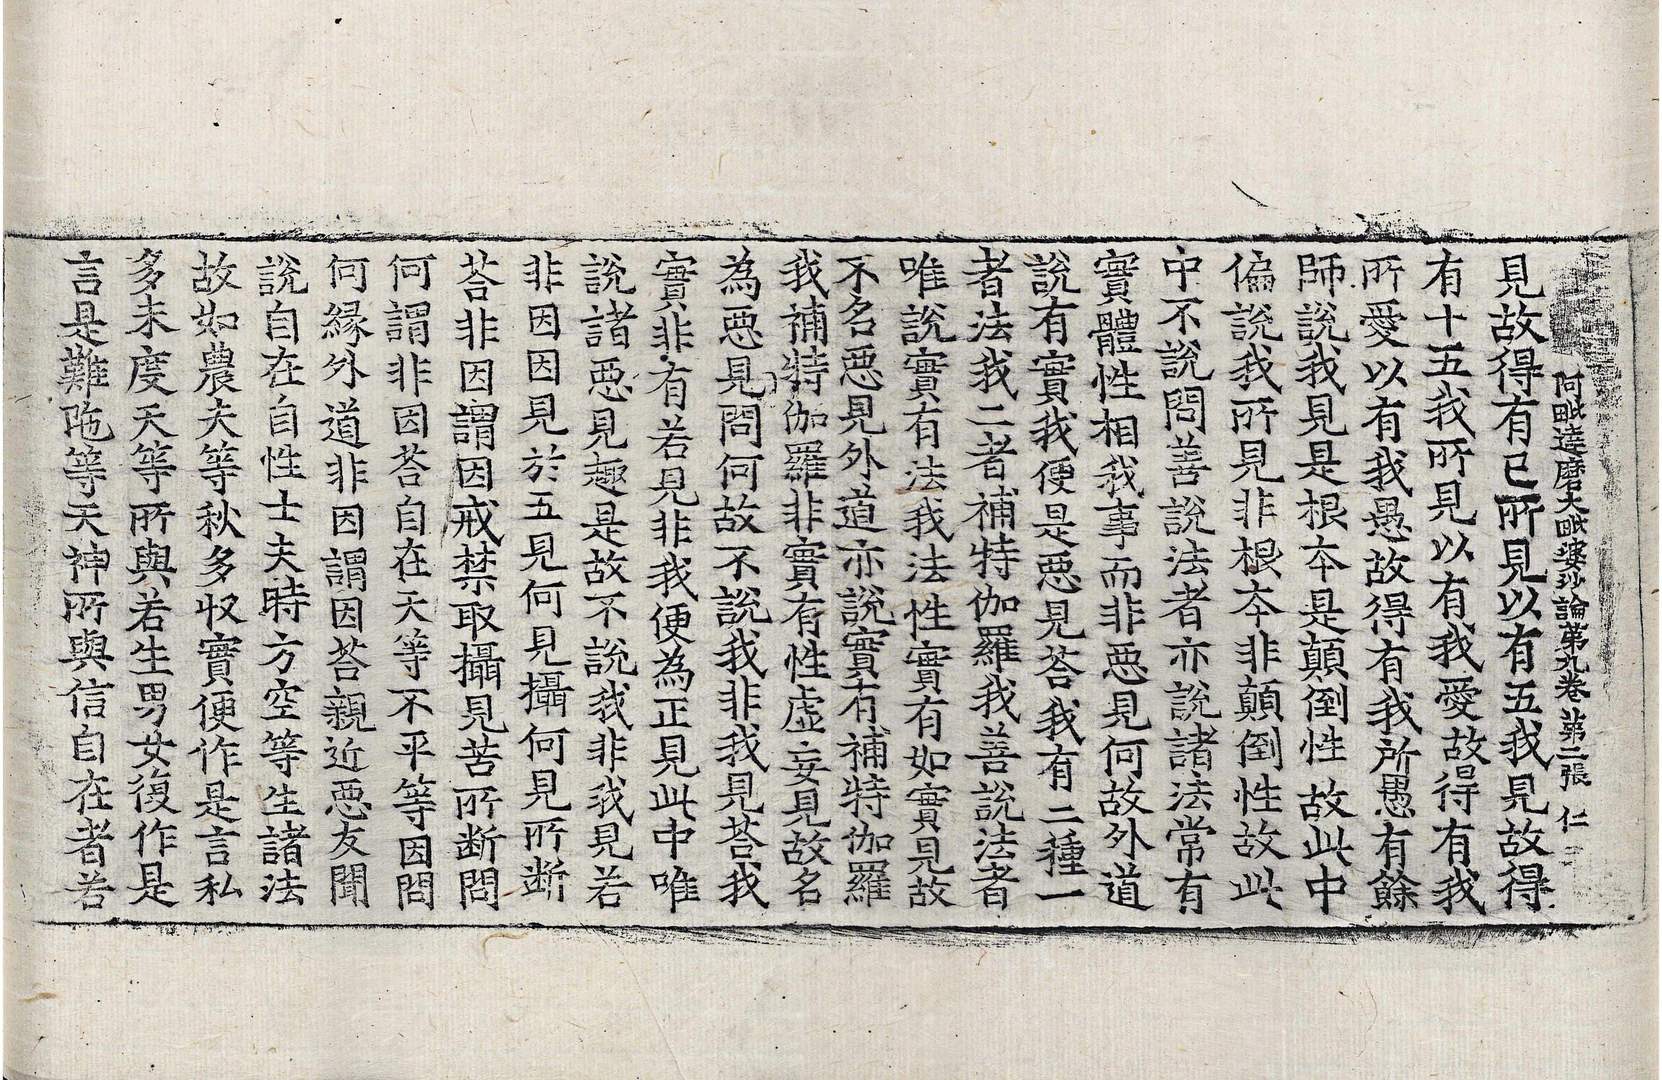 阿毗達磨大毗婆沙論第九卷 第二張 仁
見故得有已所見以有五我見故得
有十五我所見以有我愛故得有我
所愛以有我愚故得有我所愚有餘
師說我見是根本是顛倒性故此中
偏說我所見非根本非顛倒性故此
中不說問善說法者亦說諸法常有
實體性相我事而非惡見何故外道
說有實我便是惡見荅我有二種一
者法我二者補特伽羅我善說法者
唯說實有法我法性實有如實見故
不名惡見外道亦說實有補特伽羅
我補特伽羅非實有性虛妄見故名
為惡見問何故不說我非我見荅我
實非有若見非我便為正見此中唯
說諸惡見趣是故不說我非我見若
非因因見於五見何見攝何見所斷
荅非因謂因戒禁取攝見苦所斷問
何謂非因荅自在天等不平等因問
何緣外道非因謂因荅親近惡友聞
說自在自性士夫時方空等生諸法
故如農夫等秋多收實便作是言私
多未度天等所與若生男女復作是
言是難陁等天神所與信自在者若